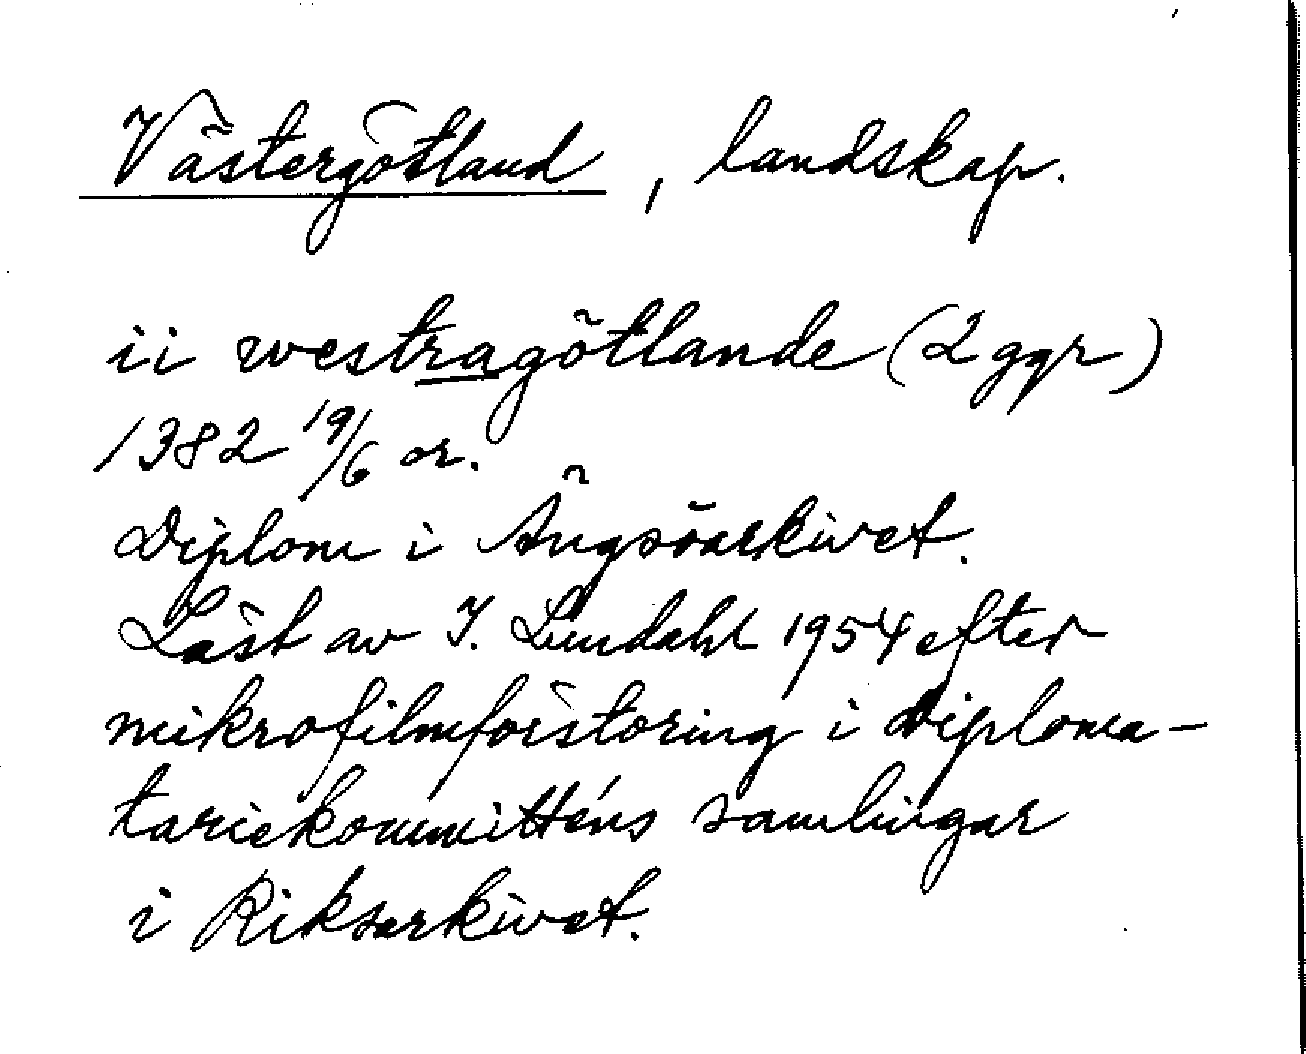 Västergötland, landskap.
ii westragötlande (2 ggr)
1382 19/6 or.
Diplom i Ängsöarkivet.
Läst av I. Lundahl 1954 efter
mikrofilmförstoring i Diploma-
tariekommitténs samlingar
i Riksarkivet.